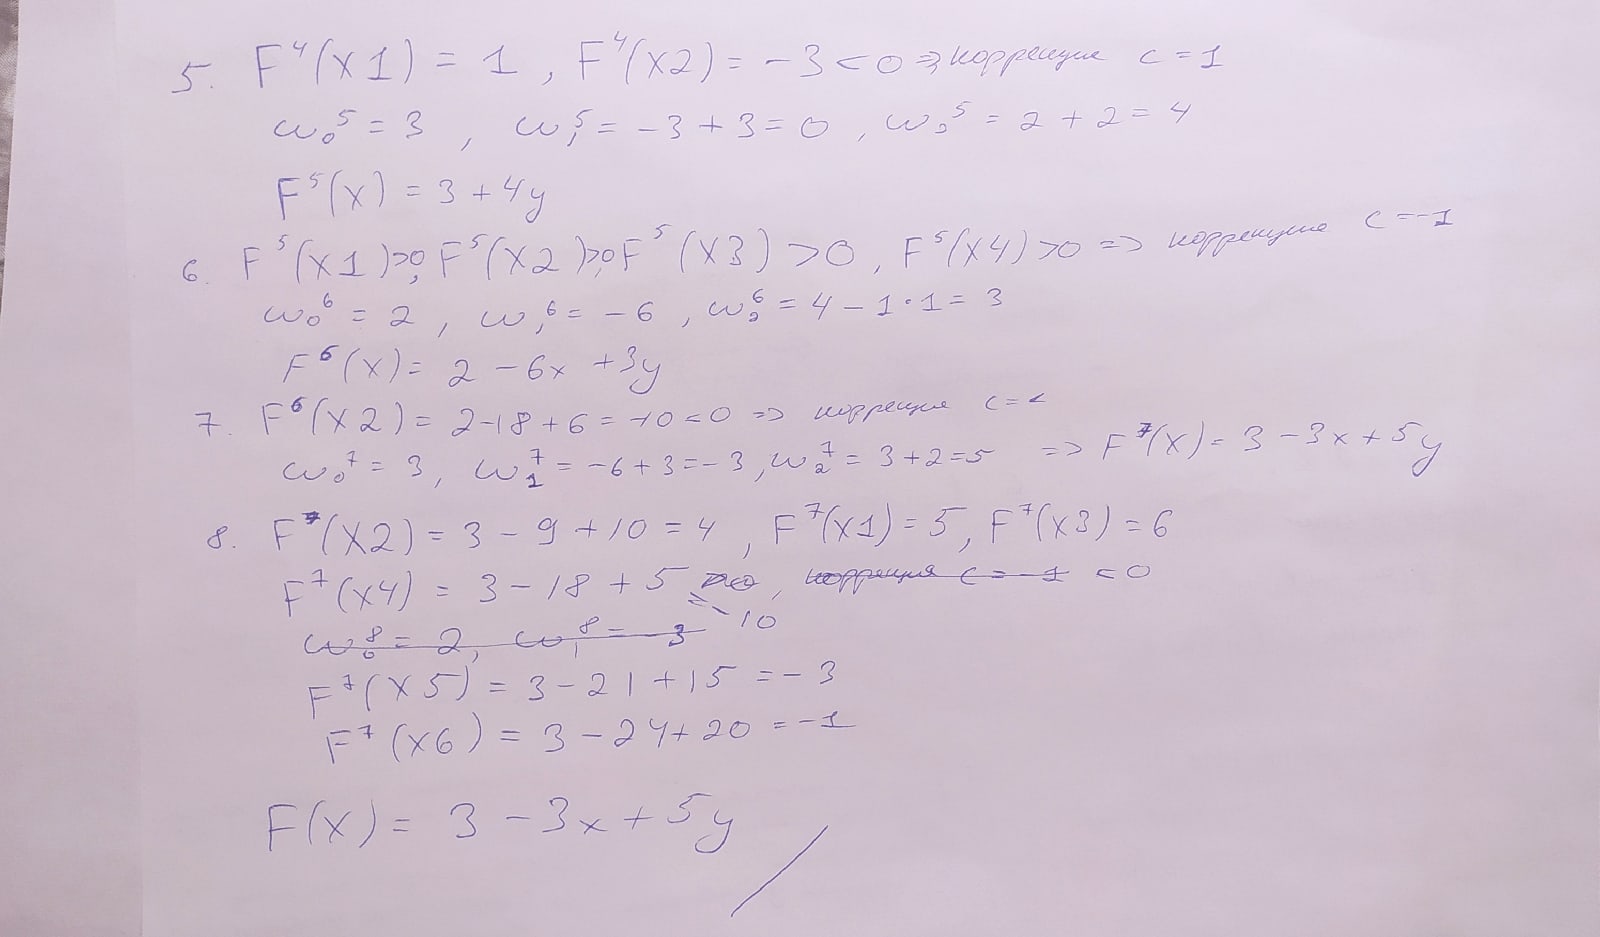 5. F⁴(x1) = 1, F⁴(x2) = -3 < 0 => коррекция c = 1
ω₀⁵ = 3, ω₁⁵ = -3 + 3 = 0, ω₂⁵ = 2 + 2 = 4
F⁵(x) = 3 + 4y
6. F⁵(x1)>0, F⁵(x2)>0, F⁵(x3) >0, F⁵(x4)>0 => коррекция c = -1
ω₀⁶ = 2, ω₁⁶ = -6, ω₂⁶ = 4 - 1·1 = 3
F⁶(x) = 2 - 6x + 3y
7. F⁶(x2) = 2-18+6 = -10 < 0 => коррекция c =
ω₀⁷ = 3, ω₁⁷ = -6+3=-3, ω₂⁷ = 3+2=5 => F⁷(x) = 3 - 3x + 5y
8. F⁷(x2) = 3 - 9 + 10 = 4, F⁷(x1) = 5, F⁷(x3) = 6
F⁷(x4) = 3 - 18 + 5 >0, коррекция c = -1 < 0
= -10
ω₀⁸ = 2, ω₁⁸ = -3
F⁷(x5) = 3 - 21 + 15 = -3
F⁷(x6) = 3 - 24 + 20 = -1
F(x) = 3 - 3x + 5y